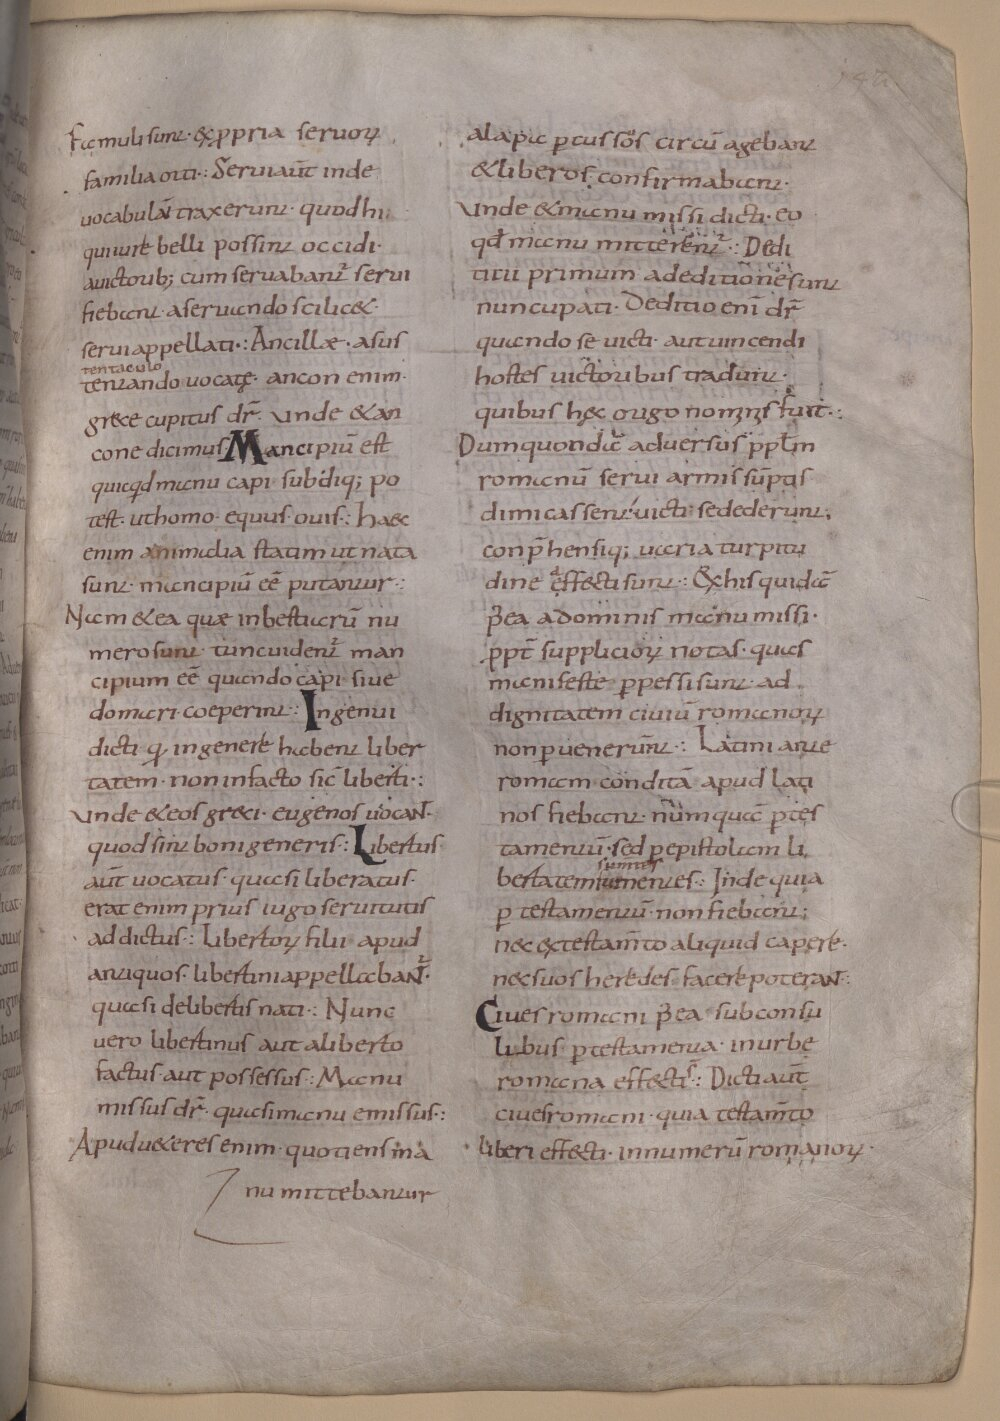 Famuli sunt · & ꝓpria seruoꝝ
familia orti ·: Serui aūt inde
vocabulū traxerunt · quod hi
qui iure belli possint occidi ·
a uictorib; cum seruabant᷒ serui
fiebant · a seruando scilic& ·
serui appellati ·: Ancillæ · a sus
tentaculo
tentando vocatę · ancon enim ·
grece cupitus dr̄ · Vnde & an
cone dicimus Mancipiū est
quicqđ manu capi · subdiq; po
test · ut homo · equus · ouis ·: haec
enim animalia statim ut nata
sunt · mancipiū eē putantur ·:
Nam & ea quæ in bestiarū nu
mero sunt · tunc uident᷒ man
cipium eē quando capi · siue
domari · coeperint ·: Ingenui
dicti · qꝛ in genere habent liber
tatem · non in facto sic̄ liberti ·:
Vnde & eos greci · eugenos uocaNt ·
quod sint boni generis ·: Libertus
aūt uocatus · quasi liberatus ·
erat enim prius iugo seruitutis
addictus ·: Libertoꝝ filii apud
antiquos · libertini appellabaNt᷒ ·
quasi de libertis nati ·: Nunc
uero libertinus aut a liberto
factus · aut possessus ·: Manu
missus dr̄ · quasi manu emissus ·:
Apud ueteres enim · quotiens ma
nu mittebantur
alapa ꝑcussos circū agebant
& liberos confirmabant ·
Vnde & manu missi dicti · eo
qđ manu mitterent᷒ ·: Dedi
titii primum a deditione sunt
nuncupati · Deditio enī dr̄
quando se victi · aut uincendi
hostes uictoribus tradunt ·
quibus hęc origo nominis fuit ·:
Dum quondā aduersus pplm̄
romanū serui armis sūptis
dimicassent · uicti · se dederunt ;
conp̄hensiq; uaria turpitu
dine affecti sunt ·: Ex his quidā
p̄ea a dominis manu missi ·
ꝓpt̄ supplicioꝝ notas · quas
manifeste ꝑpessi sunt · ad
dignitatem ciuiū romanoꝝ
non ꝑuenerunt ·: Latini ante
romam conditā apud lati
nos fiebant · nūmquā ꝑ tes
tamentū · sed ꝑ epistolam li
sumen
bertatem sumentes ·: Inde quia
ꝑ testamentū · non fiebant ;
nec ex testam̄to aliquid capere ·
nec suos heredes · facere poteraNt ·:
Ciues romani p̄ea · sub consu
libus ꝑ testamenta · in urbe
romana effecti sᷤ ·: Dicti aūt
ciues romani · quia testam̄to
liberi effecti · in numerū romanoꝝ ·